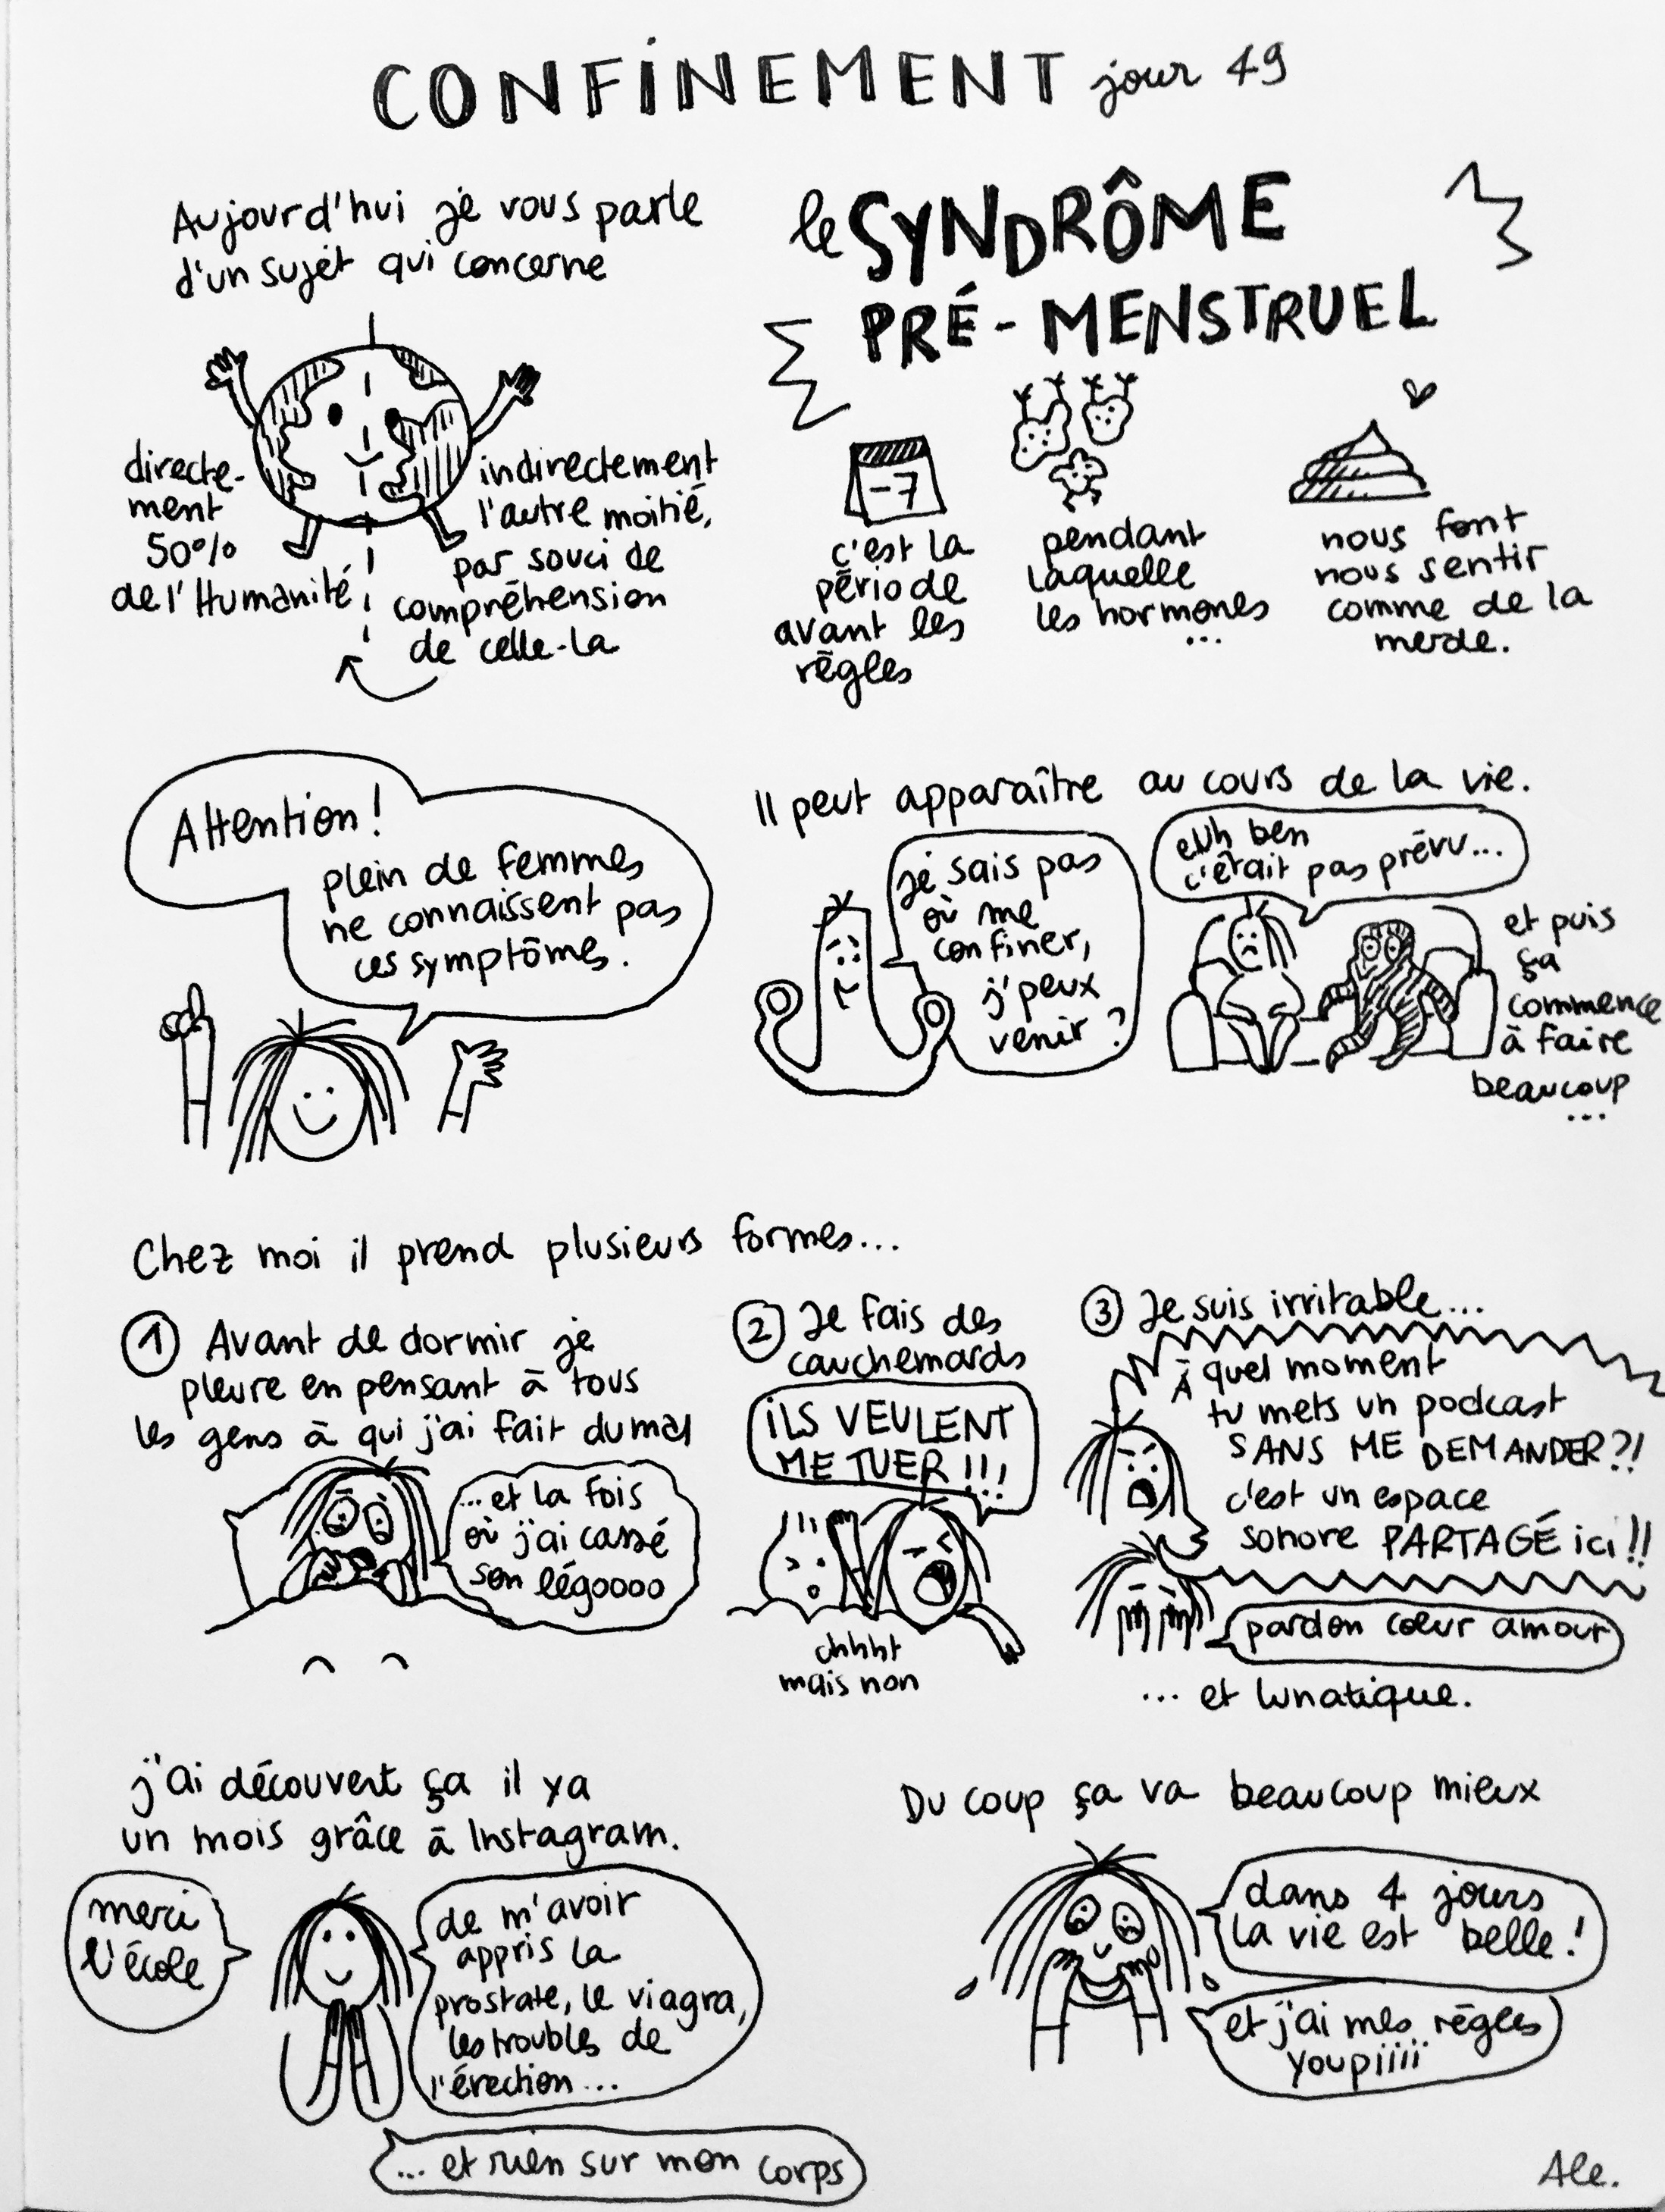 CONFINEMENT jour 49
Aujourd'hui je vous parle
d'un sujet qui concerne
directe-
ment
50%
de l'Humanité
indirectement
l'autre moitié,
par souci de
compréhension
de celle-là
le SYNDRÔME
PRÉ-MENSTRUEL
-7
c'est la
période
avant les
règles
pendant
laquelle
les hormones
...
nous font
nous sentir
comme de la
merde.
Attention!
plein de femmes
ne connaissent pas
ces symptômes.
Il peut apparaître au cours de la vie.
je sais pas
où me
confiner,
j'peux
venir?
euh ben
c'était pas prévu...
et puis
ça
commence
à faire
beaucoup
...
Chez moi il prend plusieurs formes...
① Avant de dormir je
pleure en pensant à tous
les gens à qui j'ai fait du mal
...et la fois
où j'ai cassé
son légoooo
② Je fais des
cauchemards
ILS VEULENT
ME TUER!!!
chhht
mais non
③ Je suis irritable...
À quel moment
tu mets un podcast
SANS ME DEMANDER?!
c'est un espace
sonore PARTAGÉ ici!!
pardon coeur amour
... et lunatique.
j'ai découvert ça il y a
un mois grâce à Instagram.
merci
l'école
de m'avoir
appris la
prostate, le viagra,
les troubles de
l'érection...
... et rien sur mon corps
Du coup ça va beaucoup mieux
dans 4 jours
la vie est belle!
et j'ai mes règles
youpiiiii
Ale.